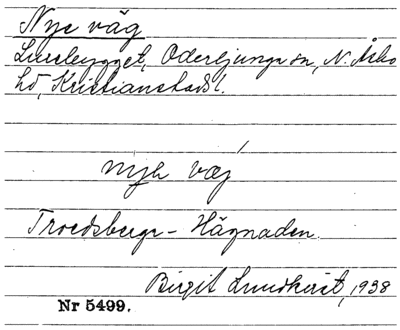 Nye väg
Lursbygget, Oderljunga sn, N. Åsbo
hd, Kristianstads l.
nyh væg
Troedsberga - Hägnaden.
Birgit Lundkvist, 1938
Nr 5499.